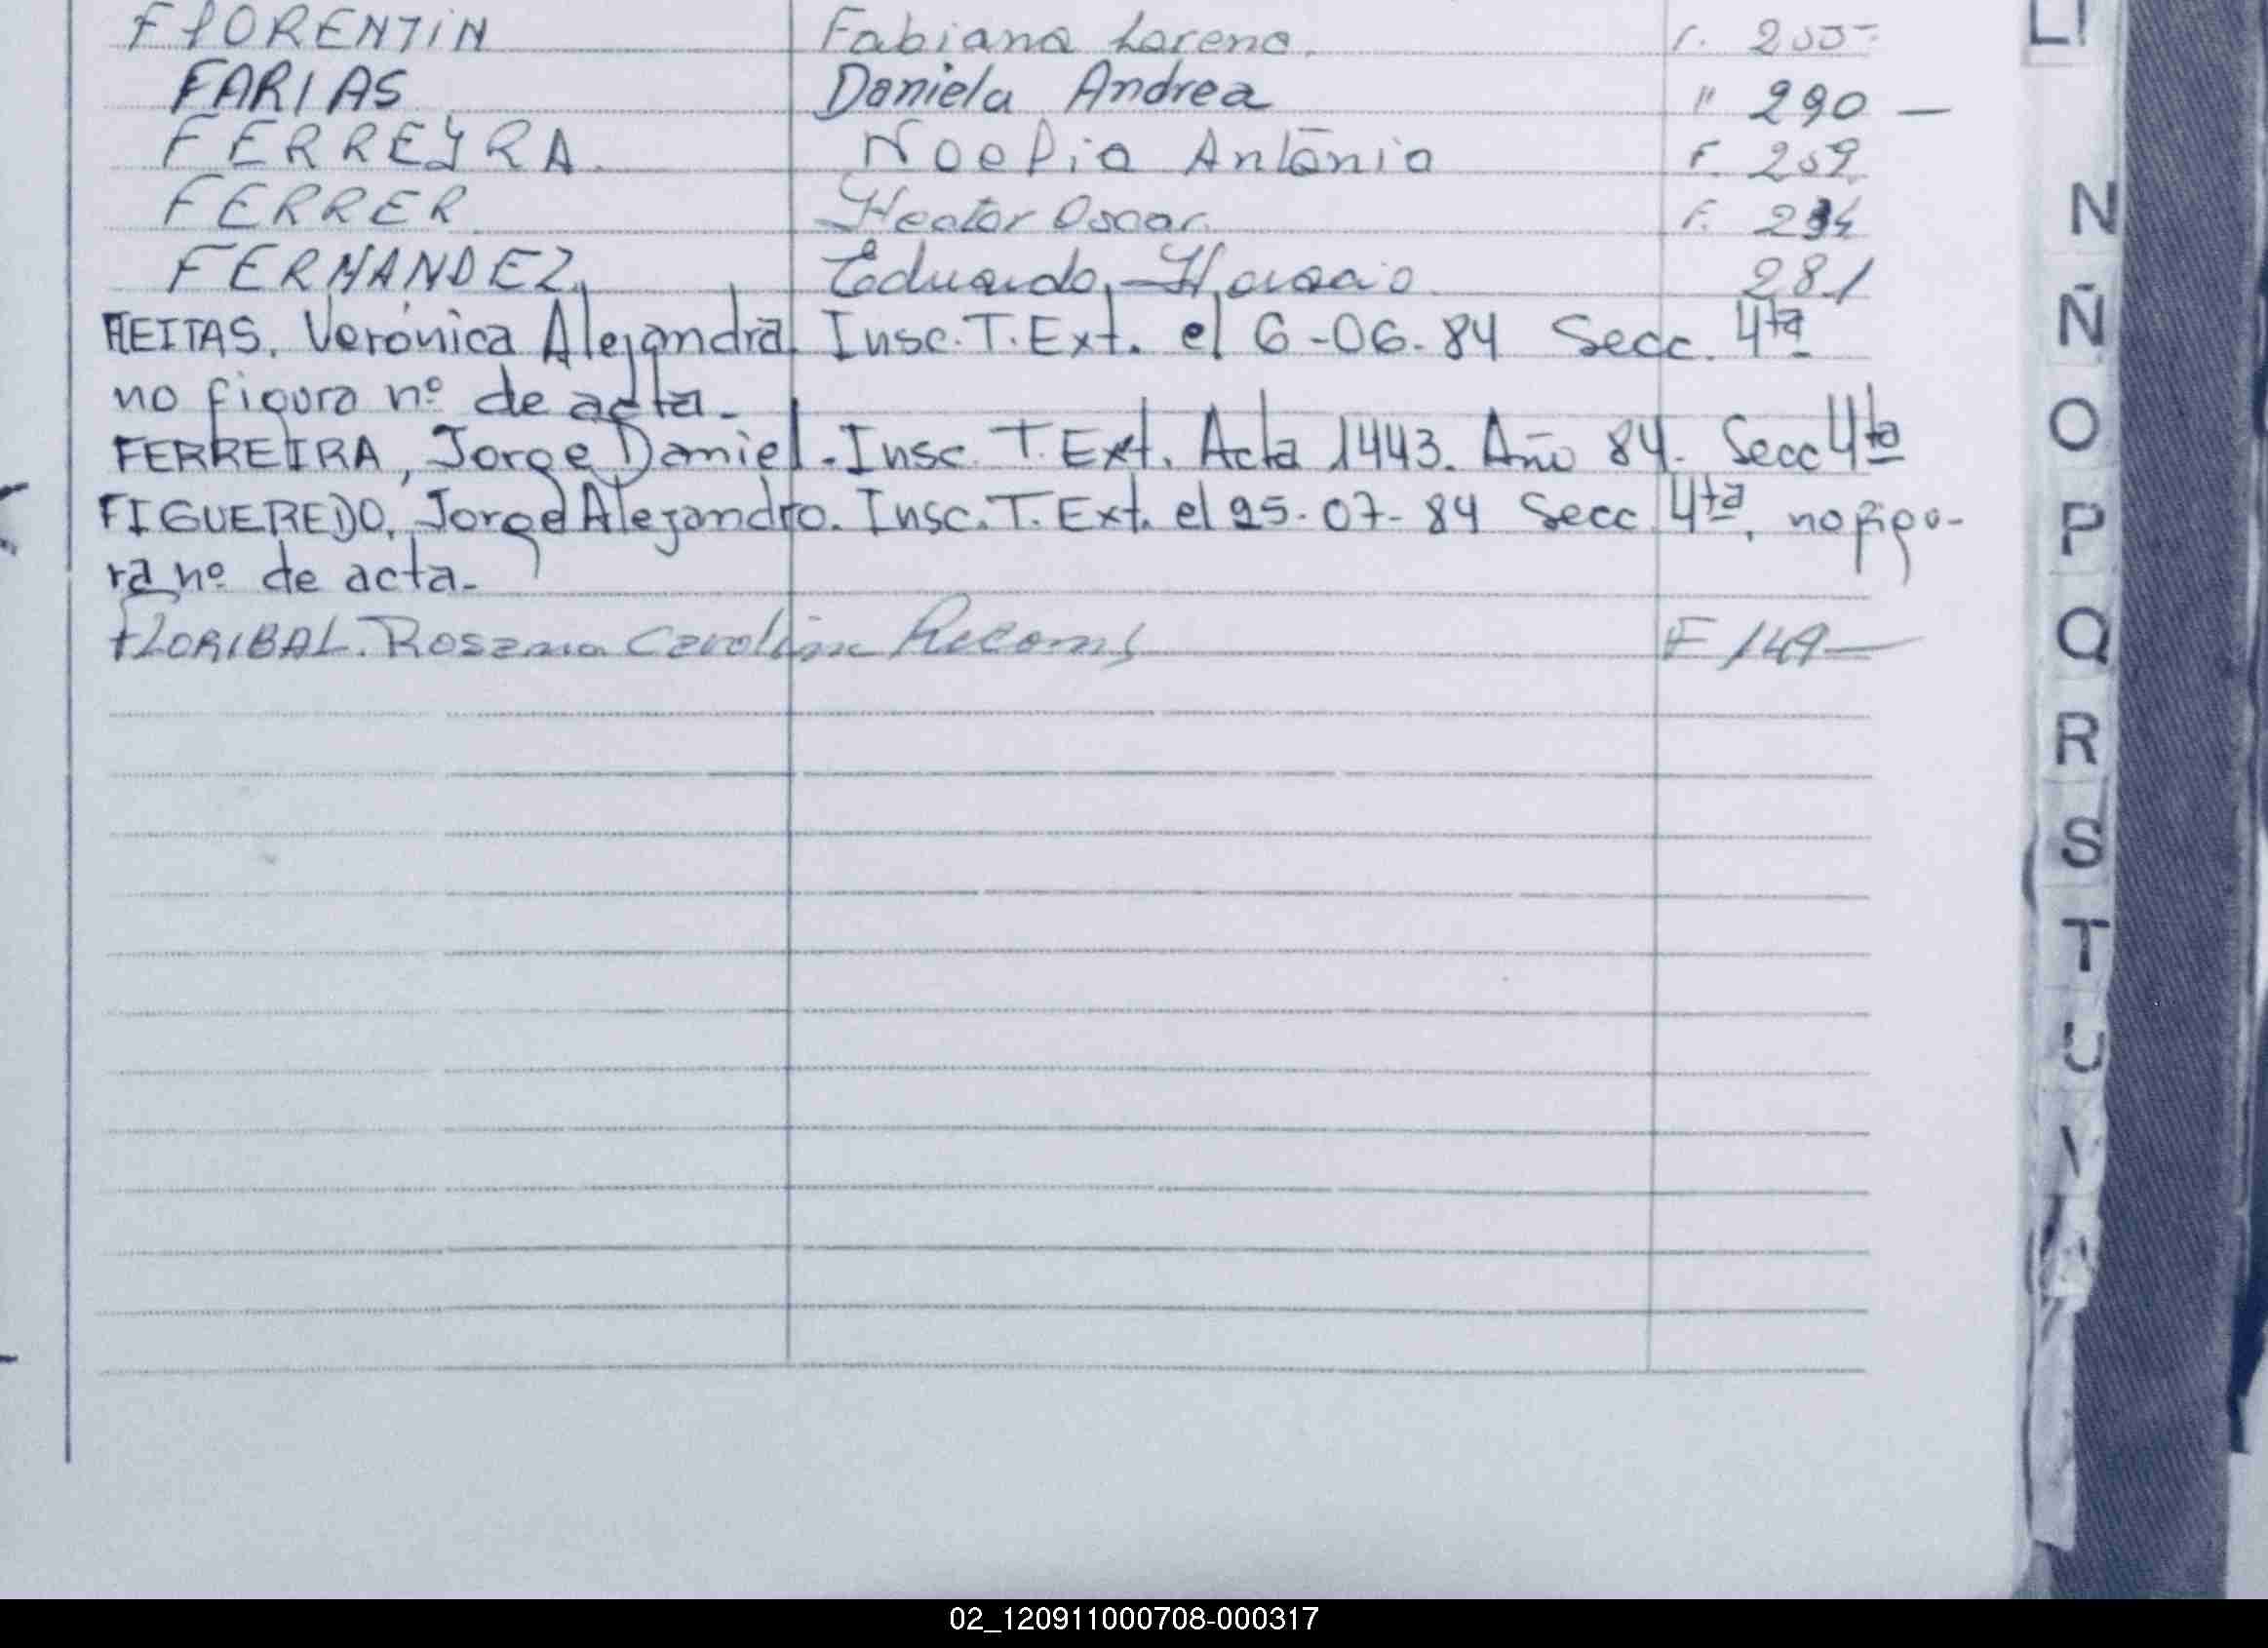 FLORENTIN Fabiana Lorena. F. 255-
FARIAS Daniela Andrea " 290 —
FERREYRA. Noelia Antonia F. 259
FERRER Hector Oscar. F. 234
FERNANDEZ. Eduardo Horacio 281
FREITAS, Verónica Alejandra. Insc. T. Ext. el 6-06-84 Secc. 4ta
no figura nº de acta-
FERREIRA, Jorge Daniel. Insc. T. Ext. Acta 1443. Año 84. Secc 4ta
FIGUEREDO, Jorge Alejandro. Insc. T. Ext. el 25-07-84 Secc 4ta, no figu-
ra nº de acta-
FLORIBAL. Rosana Carolina F 149 —
LL
N
Ñ
O
P
Q
R
S
T
U
02_120911000708-000317